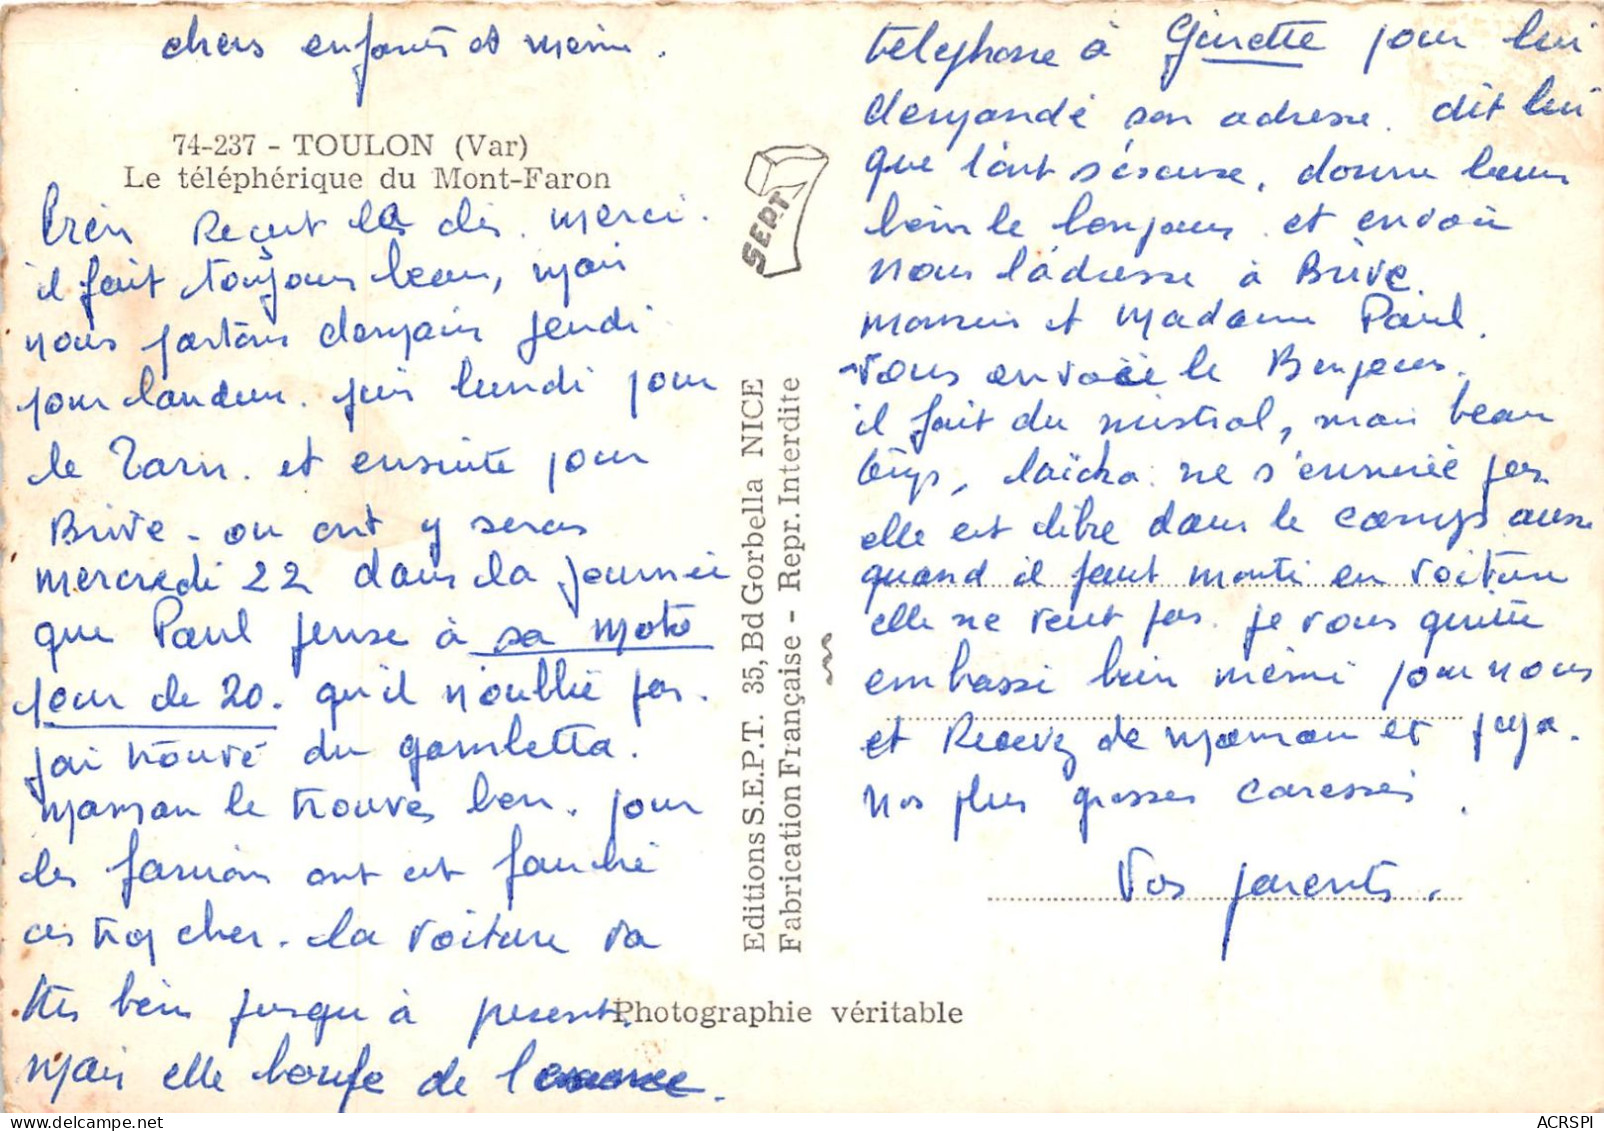 chers enfants et memie.
74-237 - TOULON (Var)
Le téléphérique du Mont-Faron
bien Reçut les clés. merci.
il fait toujours beau, mais
nous partons demain jeudi
pour landeur. puis lundi pour
le Tarn. et ensuite pour
Brive - ou ont y seras
mercredi 22 dans la journée
que Paul pense à sa moto
jour de 20. qu'il n'oublie pas.
j'ai trouvé du gambetta.
maman le trouves bon. pour
les ont est
ces trop cher. la voiture va
tres bien jusqu à present.
mais elle boufe de l'essence.
telephone à Ginette pour lui
demandé son adresse. dit lui
que l'ont s'éscuse, donne leurs
bien le bonjours. et envoie
nous l'adresse à Brive.
monsieur et Madame Paul.
vous envoie le Bonjours.
il fait du mistral, mais beau
temps, laïcka ne s'ennuie pas
elle est libre dans le camps aussi
quand il faut monté en voiture
elle ne veut pas. je vous quitte
embassé bien mémé pour nous
et Recevez de maman et papa.
nos plus grosses caresses.
Vos parents.
SEPT
Editions S.E.P.T. 35, Bd Gorbella NICE
Fabrication Française - Repr. Interdite
Photographie véritable
ACRSPI